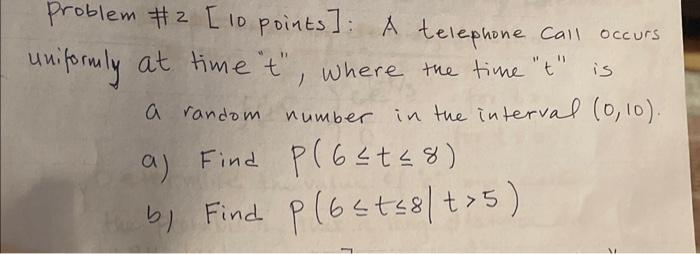 Problem #2 [10 points]: A telephone Call occurs
uniformly at time "t", where the time "t" is
a random number in the interval (0,10).
a) Find P(6≤t≤8)
b) Find P(6≤t≤8|t>5)